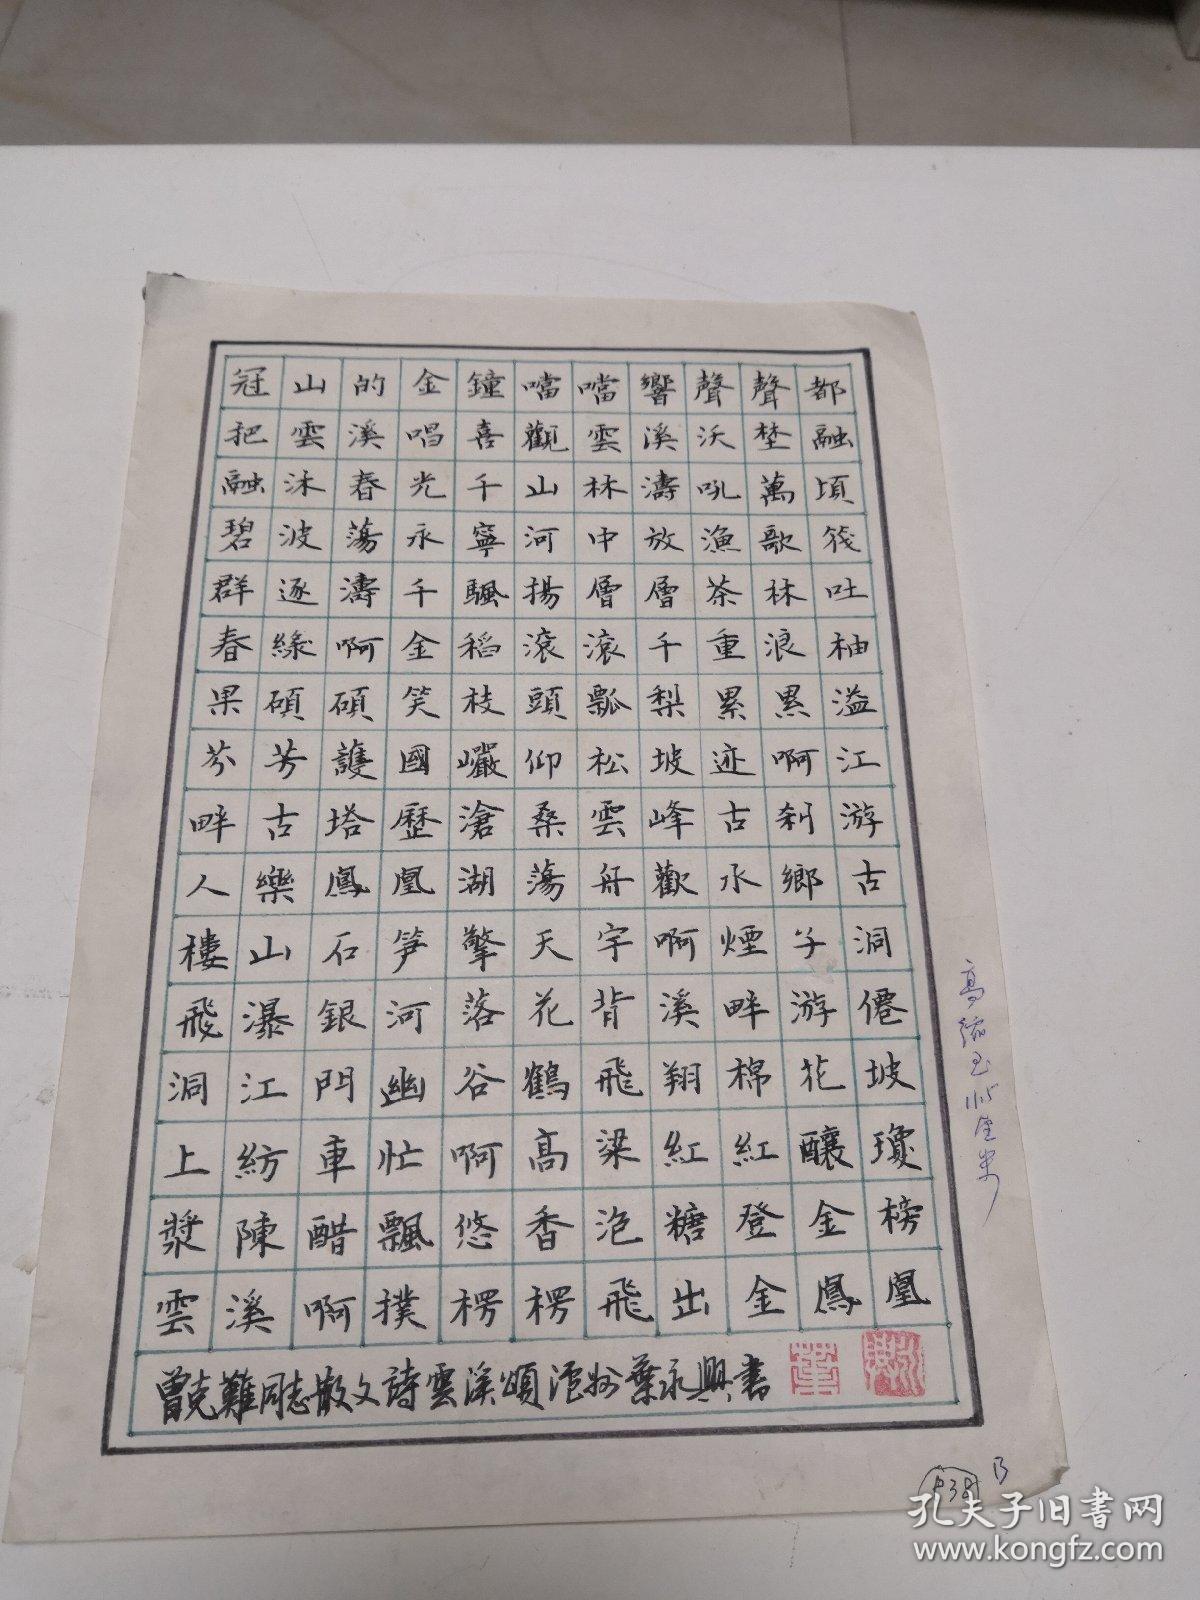 冠山的金鐘噹噹響聲聲都
把雲溪唱喜觀雲溪沃埜融
融沐春光千山林濤吼萬頃
碧波蕩永寧河中放漁歌筏
群逐濤千颿揚層層茶林吐
春緣啊金稻滾滾千重浪柚
果碩碩笑枝頭瓢梨累累溢
芬芳護國巖仰松坡迹啊江
畔古塔歷滄桑雲峰古刹游
人樂鳳凰湖蕩舟歡水鄉古
樓山石笋擎天宇啊煙子洞
飛瀑銀河落花背溪畔游僊
洞江門幽谷鶴飛翔棉花坡
上紡車忙啊高粱紅紅釀瓊
漿陳醋飄悠香泡糖登金榜
雲溪啊撲楞楞飛出金鳳凰
曾克難同志散文詩雲溪頌瀘州葉永興書
P38 B
孔夫子旧书网
www.kongfz.com